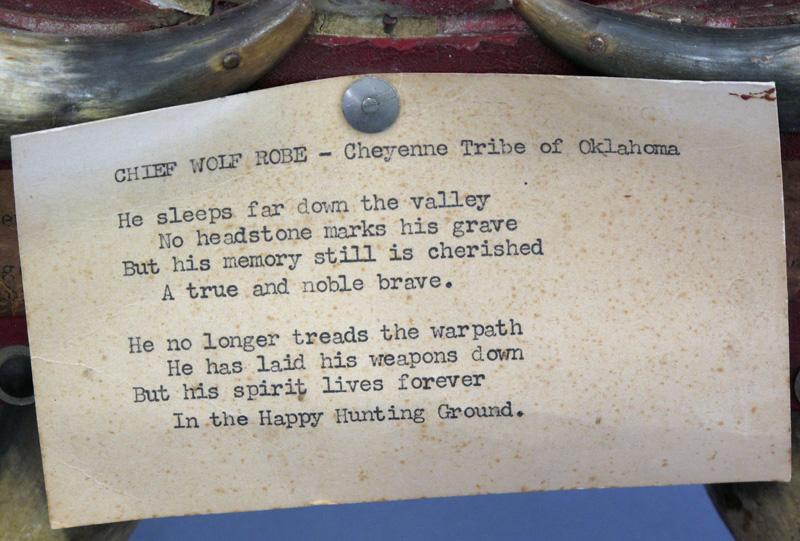 CHIEF WOLF ROBE - Cheyenne Tribe of Oklahoma
He sleeps far down the valley
No headstone marks his grave
But his memory still is cherished
A true and noble brave.
He no longer treads the warpath
He has laid his weapons down
But his spirit lives forever
In the Happy Hunting Ground.